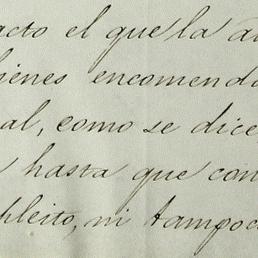 acto el que la a
bienes encomend
al, como se dice,
hasta que con
pleito, ni tampoc